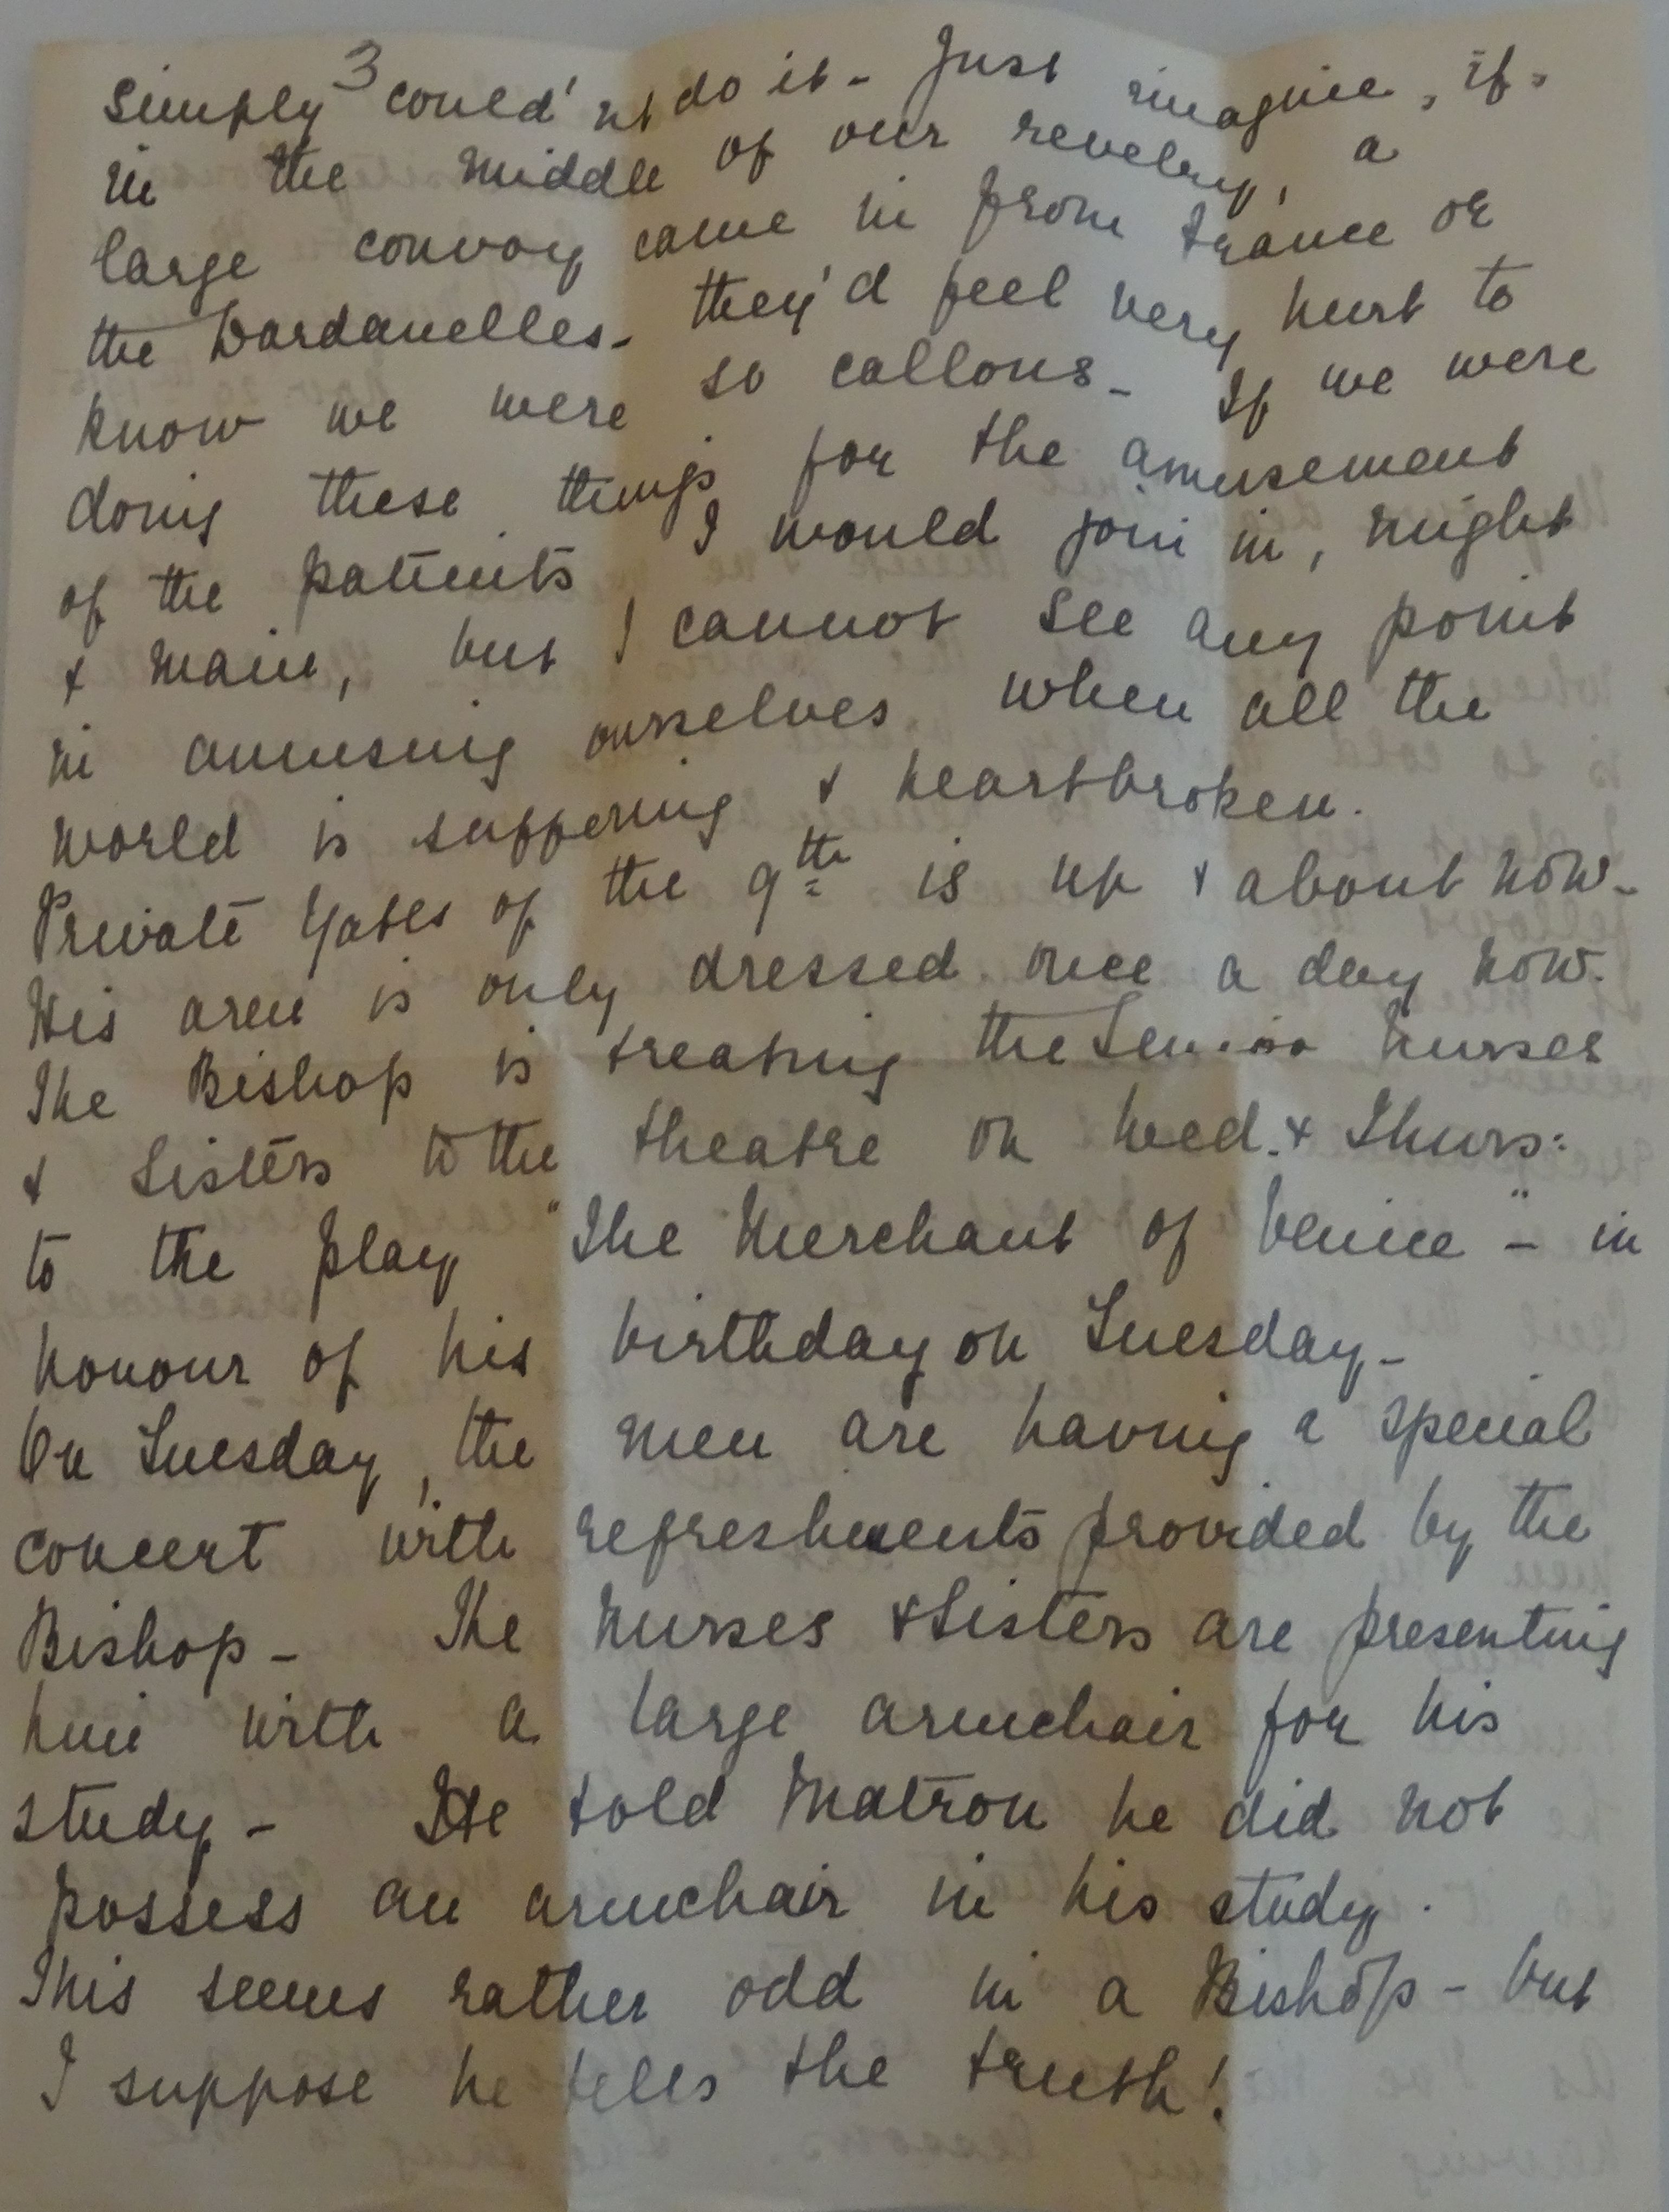 3
simply could'nt do it - Just imagine, if,
in the middle of our revelry, a
large convoy came in from France or
the Dardanelles - they'd feel very hurt to
know we were so callous - If we were
doing these things for the amusement
of the patients I would join in, might
& main, but I cannot see any point
in amusing ourselves when all the
world is suffering & heartbroken.
Private Yates of the 9th is up & about now -
His arm is only dressed once a day now.
The Bishop is treating the Senior Nurses
& Sisters to the theatre on Wed. & Thurs:
to the play "The Merchant of Venice" - in
honour of his birthday on Tuesday -
On Tuesday, the men are having a special
concert with refreshments provided by the
Bishop - The Nurses & Sisters are presenting
him with a large armchair for his
study - He told Matron he did not
possess an armchair in his study.
This seems rather odd in a Bishop - but
I suppose he tells the truth!